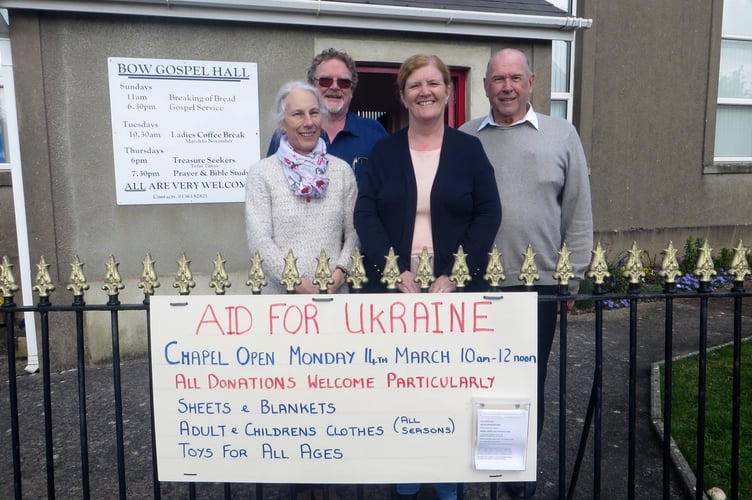 BOW GOSPEL HALL
Sundays
11am Breaking of Bread
6.30pm Gospel Service
Tuesdays
10.30am Ladies Coffee Break
March to November
Thursdays
6pm Treasure Seekers
Term Times
7.30pm Prayer & Bible Study
ALL ARE VERY WELCOME
Contacts. 01363 82821
AID FOR UKRAINE
CHAPEL OPEN MONDAY 14TH MARCH 10am-12noon
ALL DONATIONS WELCOME PARTICULARLY
SHEETS & BLANKETS
ADULT & CHILDRENS CLOTHES (ALL SEASONS)
TOYS FOR ALL AGES